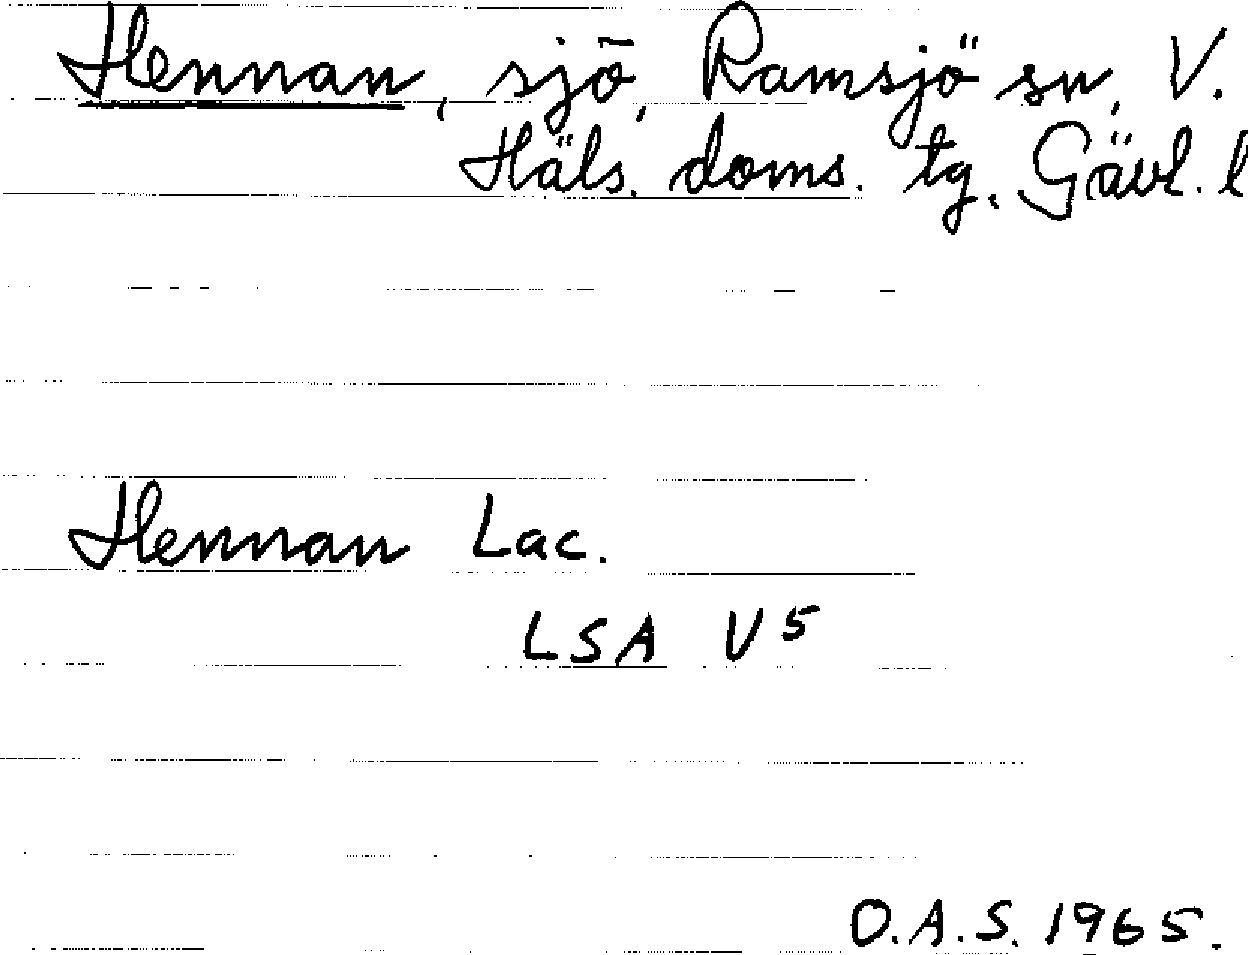 Hennan, sjö, Ramsjö sn, V.
Häls. doms. tg, Gävl. l
Hennan Lac.
LSA V 5
O.A.S. 1965.